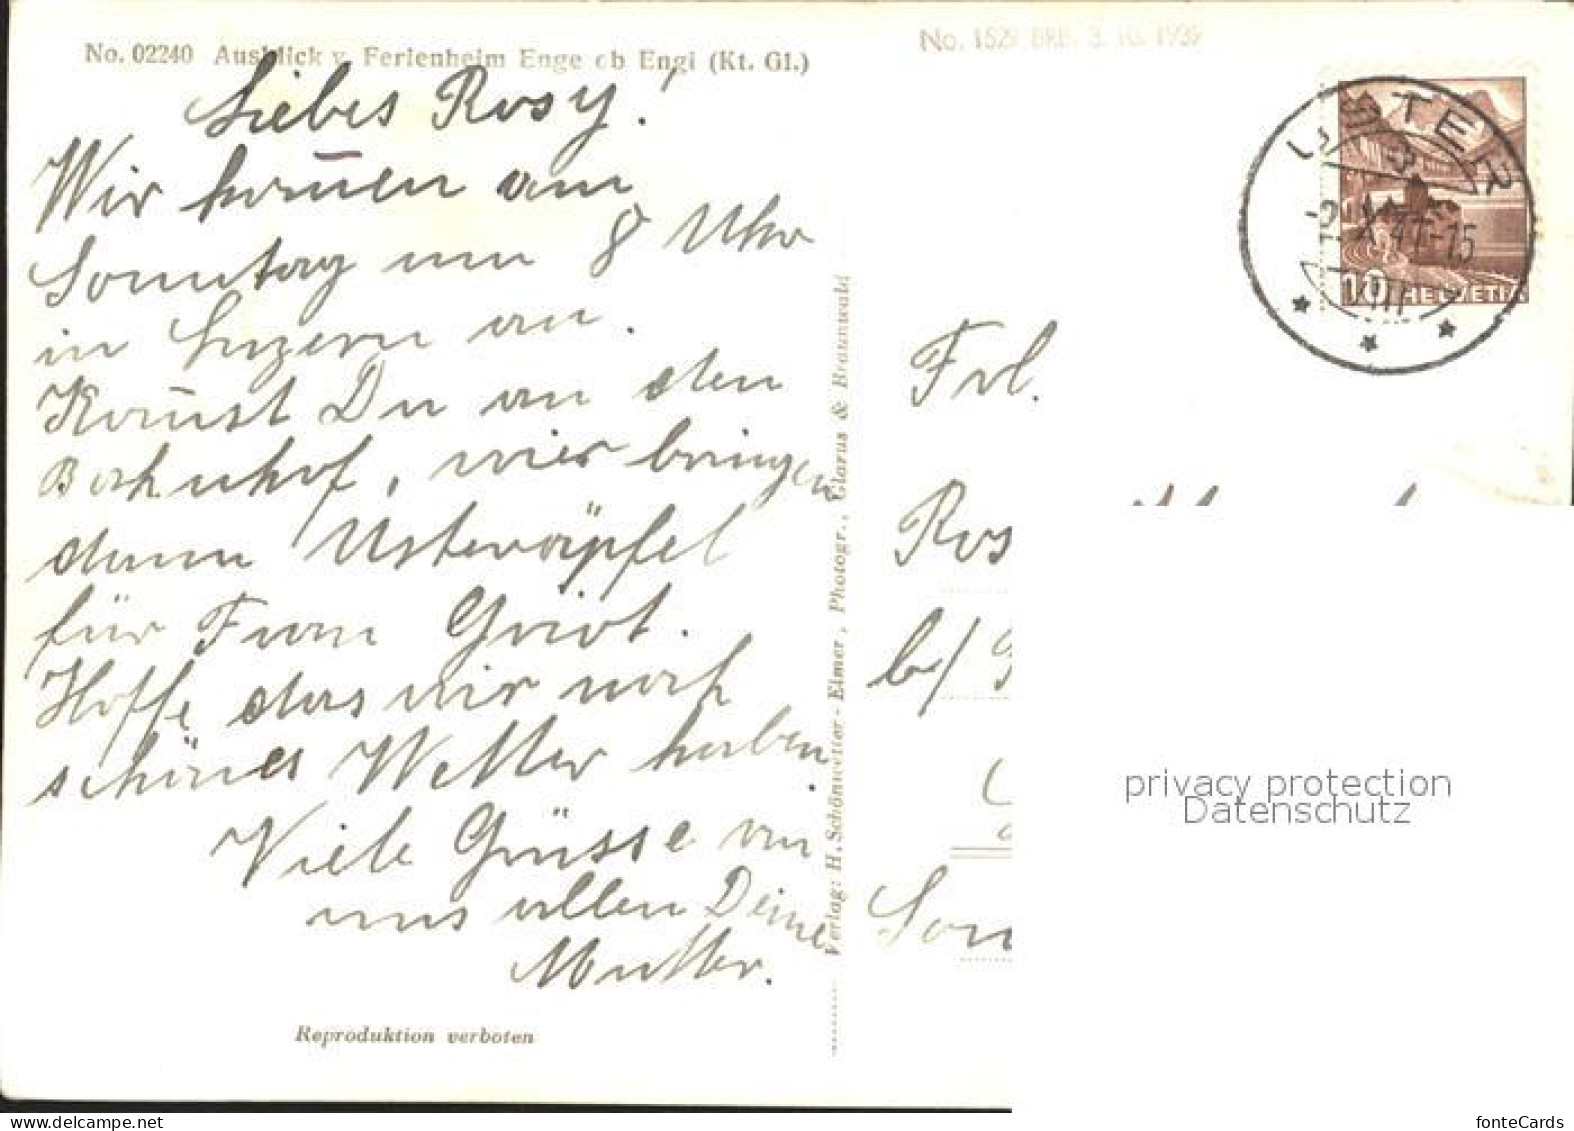 No. 02240 Ausblick v. Ferienheim Enge ob Engi (Kt. Gl.)
No. 1529 BRB. 3. 10. 1939
Liebes Rosy!
Wir kom̄en am
Sonntag um 8 Uhr
in Luzern an.
Kom̄st Du an den
Bahnhof, wier bringen
dann Usteräpfel
für Frau Griot.
Hoffe das wir noch
schönes Wetter haben.
Viele Grüsse von
uns allen Deine
Mutter.
Reproduktion verboten
Verlag: H. Schönwetter-Elmer, Photogr., Glarus & Braunwald
USTER
X. 41-15
10 HELVETIA
Frl.
Ros
b/
Son
privacy protection
Datenschutz
fonteCards
www.ansichtskartenversand.com